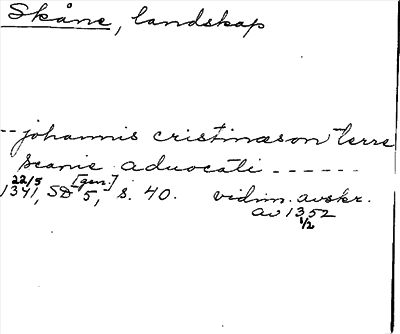 Skåne, landskap
-- johannis cristinæson terre
scanie aduocati ------
22/5 [gen.]
1341, SD 5, s. 40. vidim. avskr.
av 1352
1/2